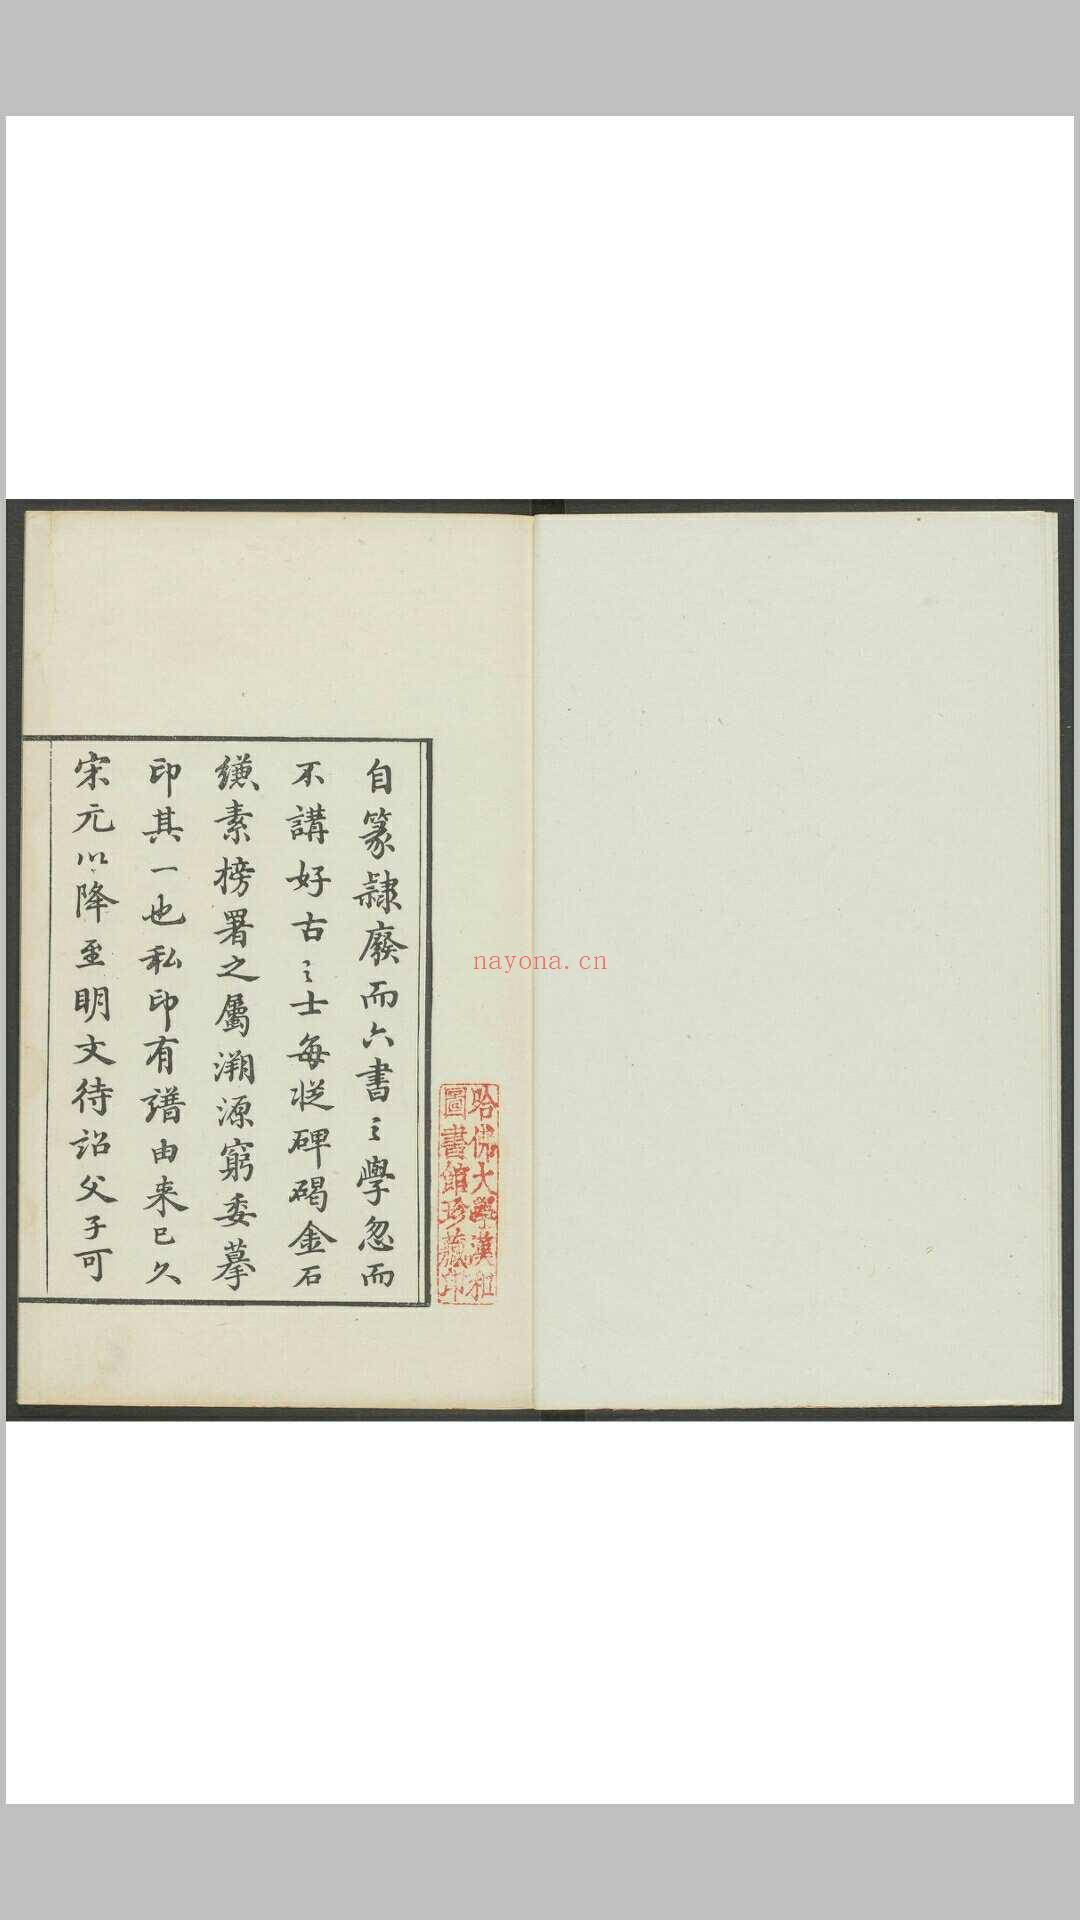 自篆隸廢而六書之學忽而
不講好古之士每從碑碣金石
縑素榜署之屬溯源窮委摹
印其一也私印有譜由来已久
宋元以降至明文待詔父子可
哈佛大學漢和
圖書館珍藏印
nayona.cn